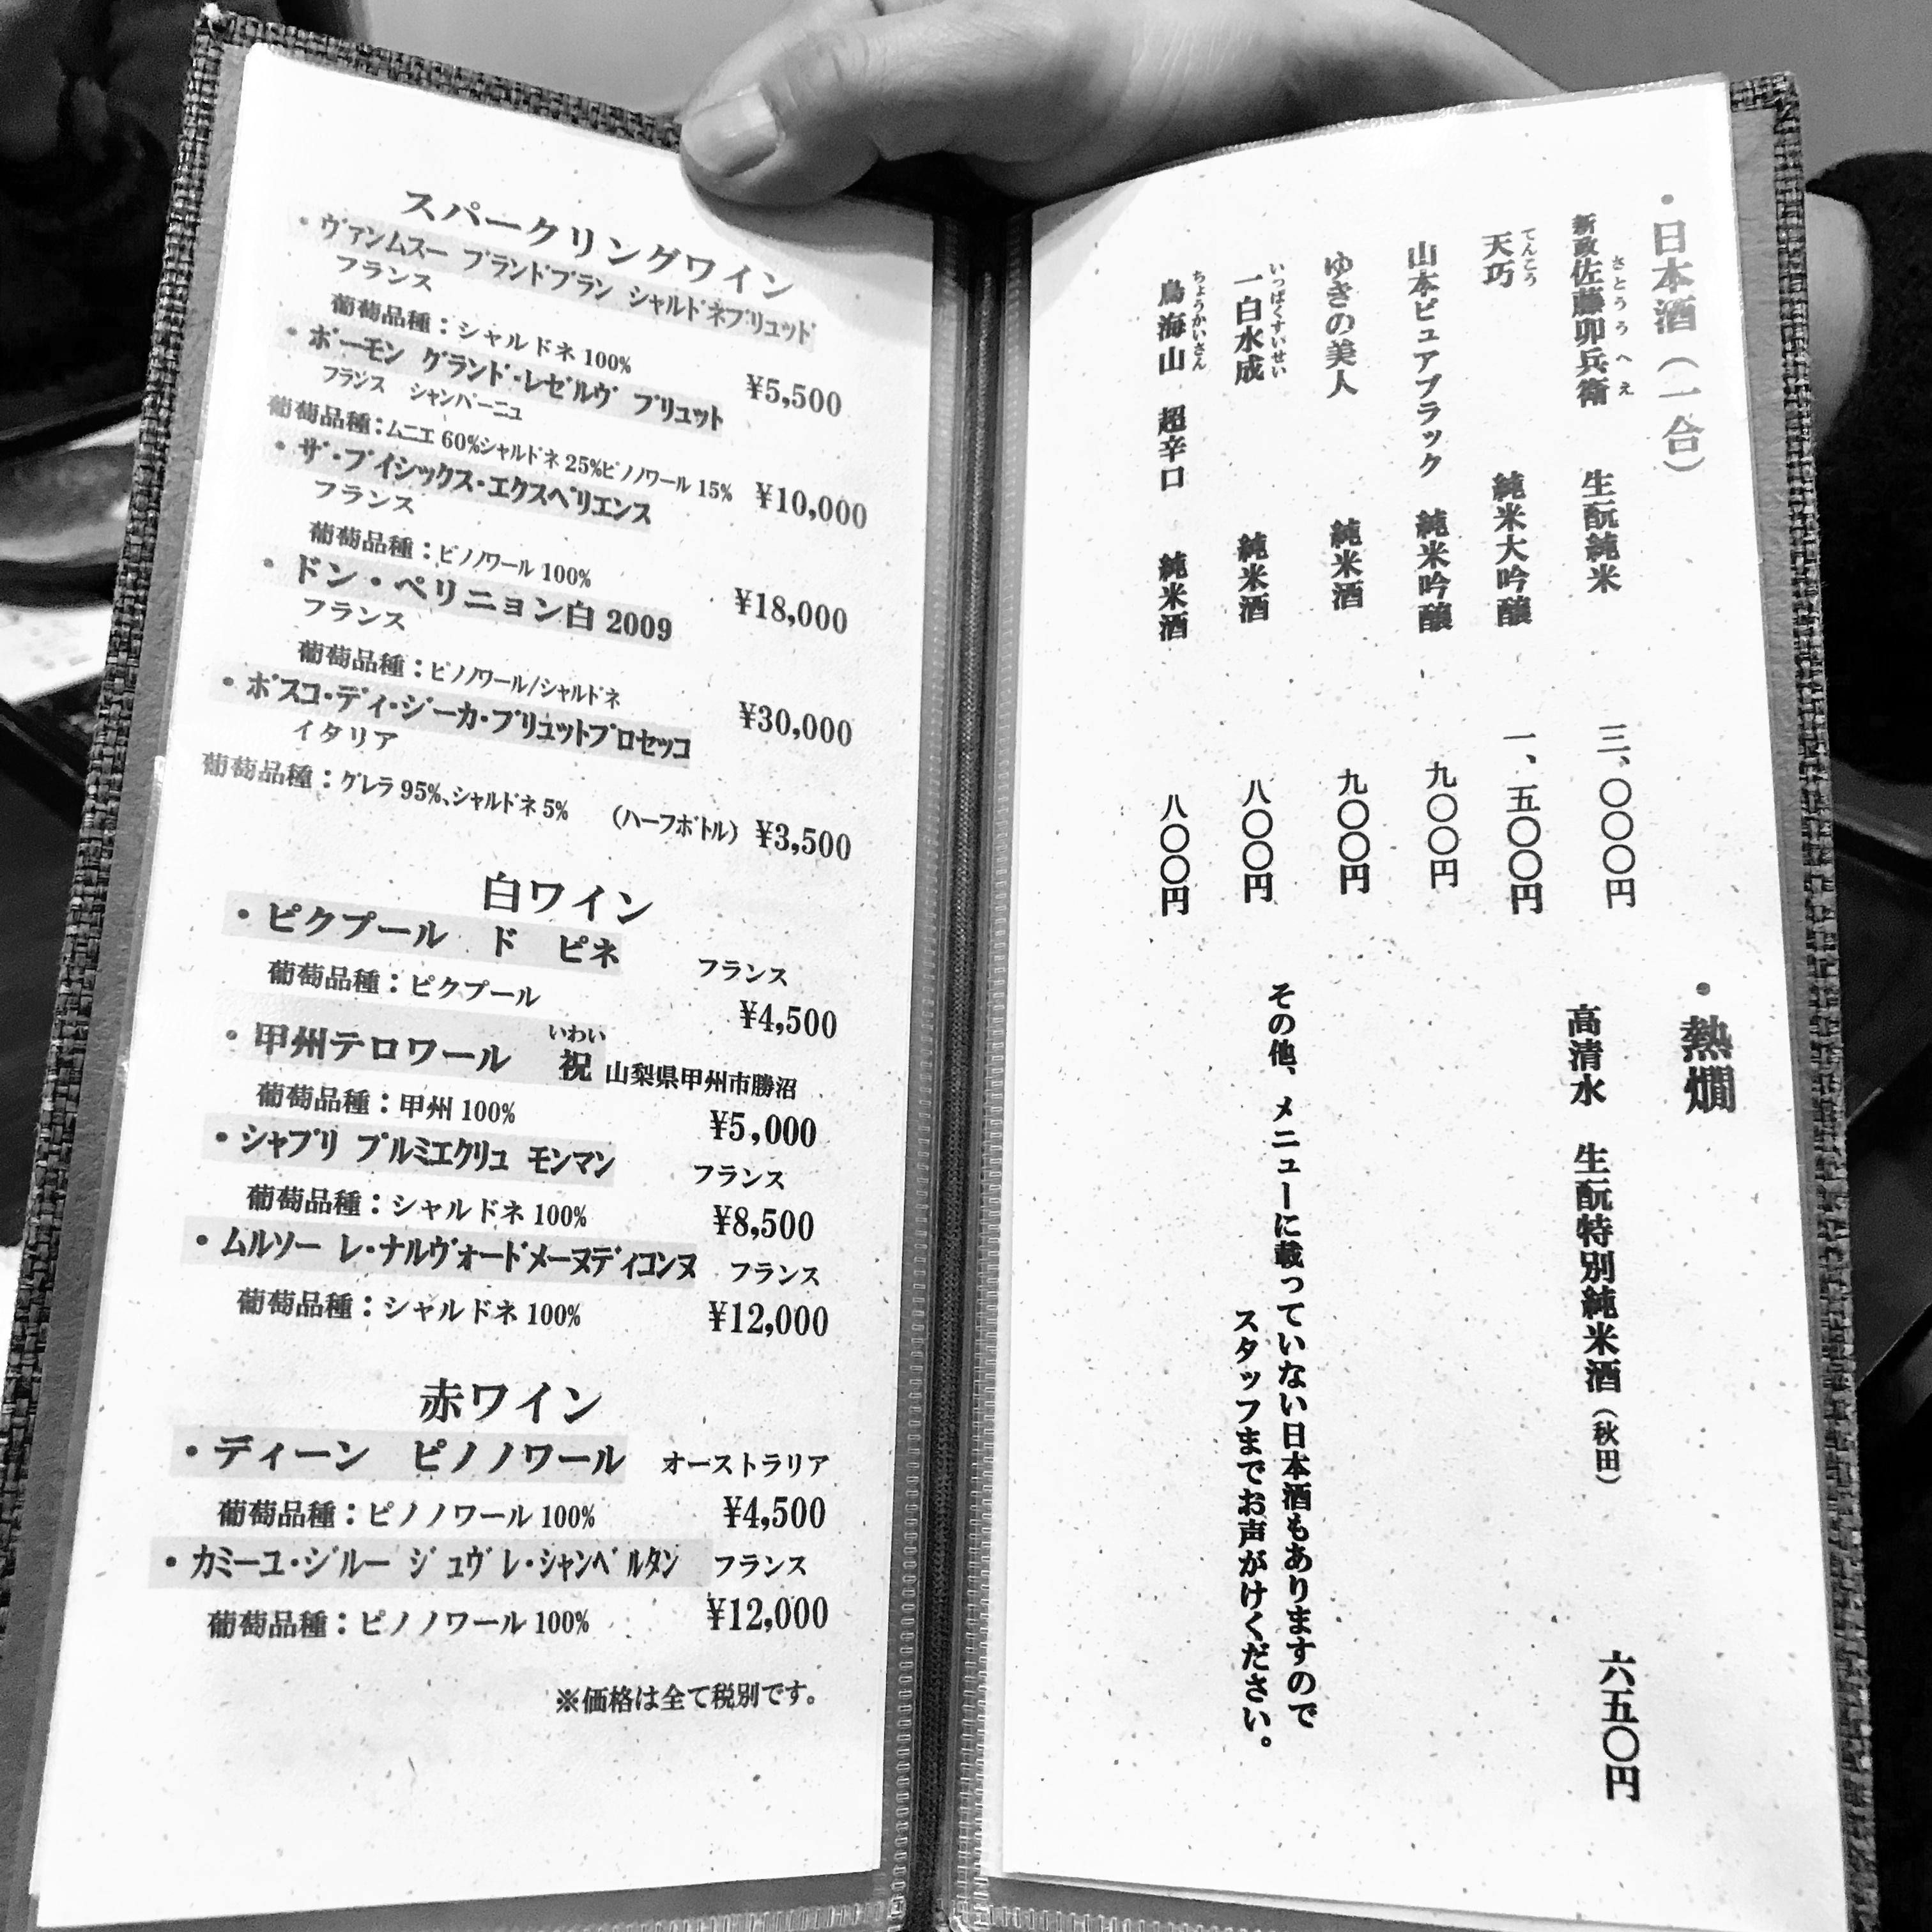 スパークリングワイン
・ヴァンムスー ブランドブラン シャルドネブリュット
フランス
葡萄品種：シャルドネ 100% ¥5,500
・ボーモン グランド・レゼルヴ ブリュット
フランス シャンパーニュ
葡萄品種：ムニエ 60%シャルドネ 25%ピノノワール 15% ¥10,000
・ザ・ブイシックス・エクスペリエンス
フランス
葡萄品種：ピノノワール 100% ¥18,000
・ドン・ペリニョン白 2009
フランス
葡萄品種：ピノノワール/シャルドネ ¥30,000
・ボスコ・ディ・ジーカ・ブリュットプロセッコ
イタリア
葡萄品種：グレラ 95%、シャルドネ 5% （ハーフボトル） ¥3,500
白ワイン
・ピクプール ド ピネ フランス
葡萄品種：ピクプール ¥4,500
いわい
・甲州テロワール 祝 山梨県甲州市勝沼
葡萄品種：甲州 100% ¥5,000
・シャブリ プルミエクリュ モンマン フランス
葡萄品種：シャルドネ 100% ¥8,500
・ムルソー レ・ナルヴォードメーヌディコンヌ フランス
葡萄品種：シャルドネ 100% ¥12,000
赤ワイン
・ディーン ピノノワール オーストラリア
葡萄品種：ピノノワール 100% ¥4,500
・カミーユ・ジルー ジュヴレ・シャンベルタン フランス
葡萄品種：ピノノワール 100% ¥12,000
※価格は全て税別です。
・日本酒（一合）
さとううへえ
新政佐藤卯兵衛 生酛純米 三、〇〇〇円
てんこう
天巧 純米大吟醸 一、五〇〇円
山本ピュアブラック 純米吟醸 九〇〇円
ゆきの美人 純米酒 九〇〇円
いっぱくすいせい
一白水成 純米酒 八〇〇円
ちょうかいさん
鳥海山 超辛口 純米酒 八〇〇円
・熱燗
高清水 生酛特別純米酒（秋田） 六五〇円
その他、メニューに載っていない日本酒もありますので
スタッフまでお声がけください。